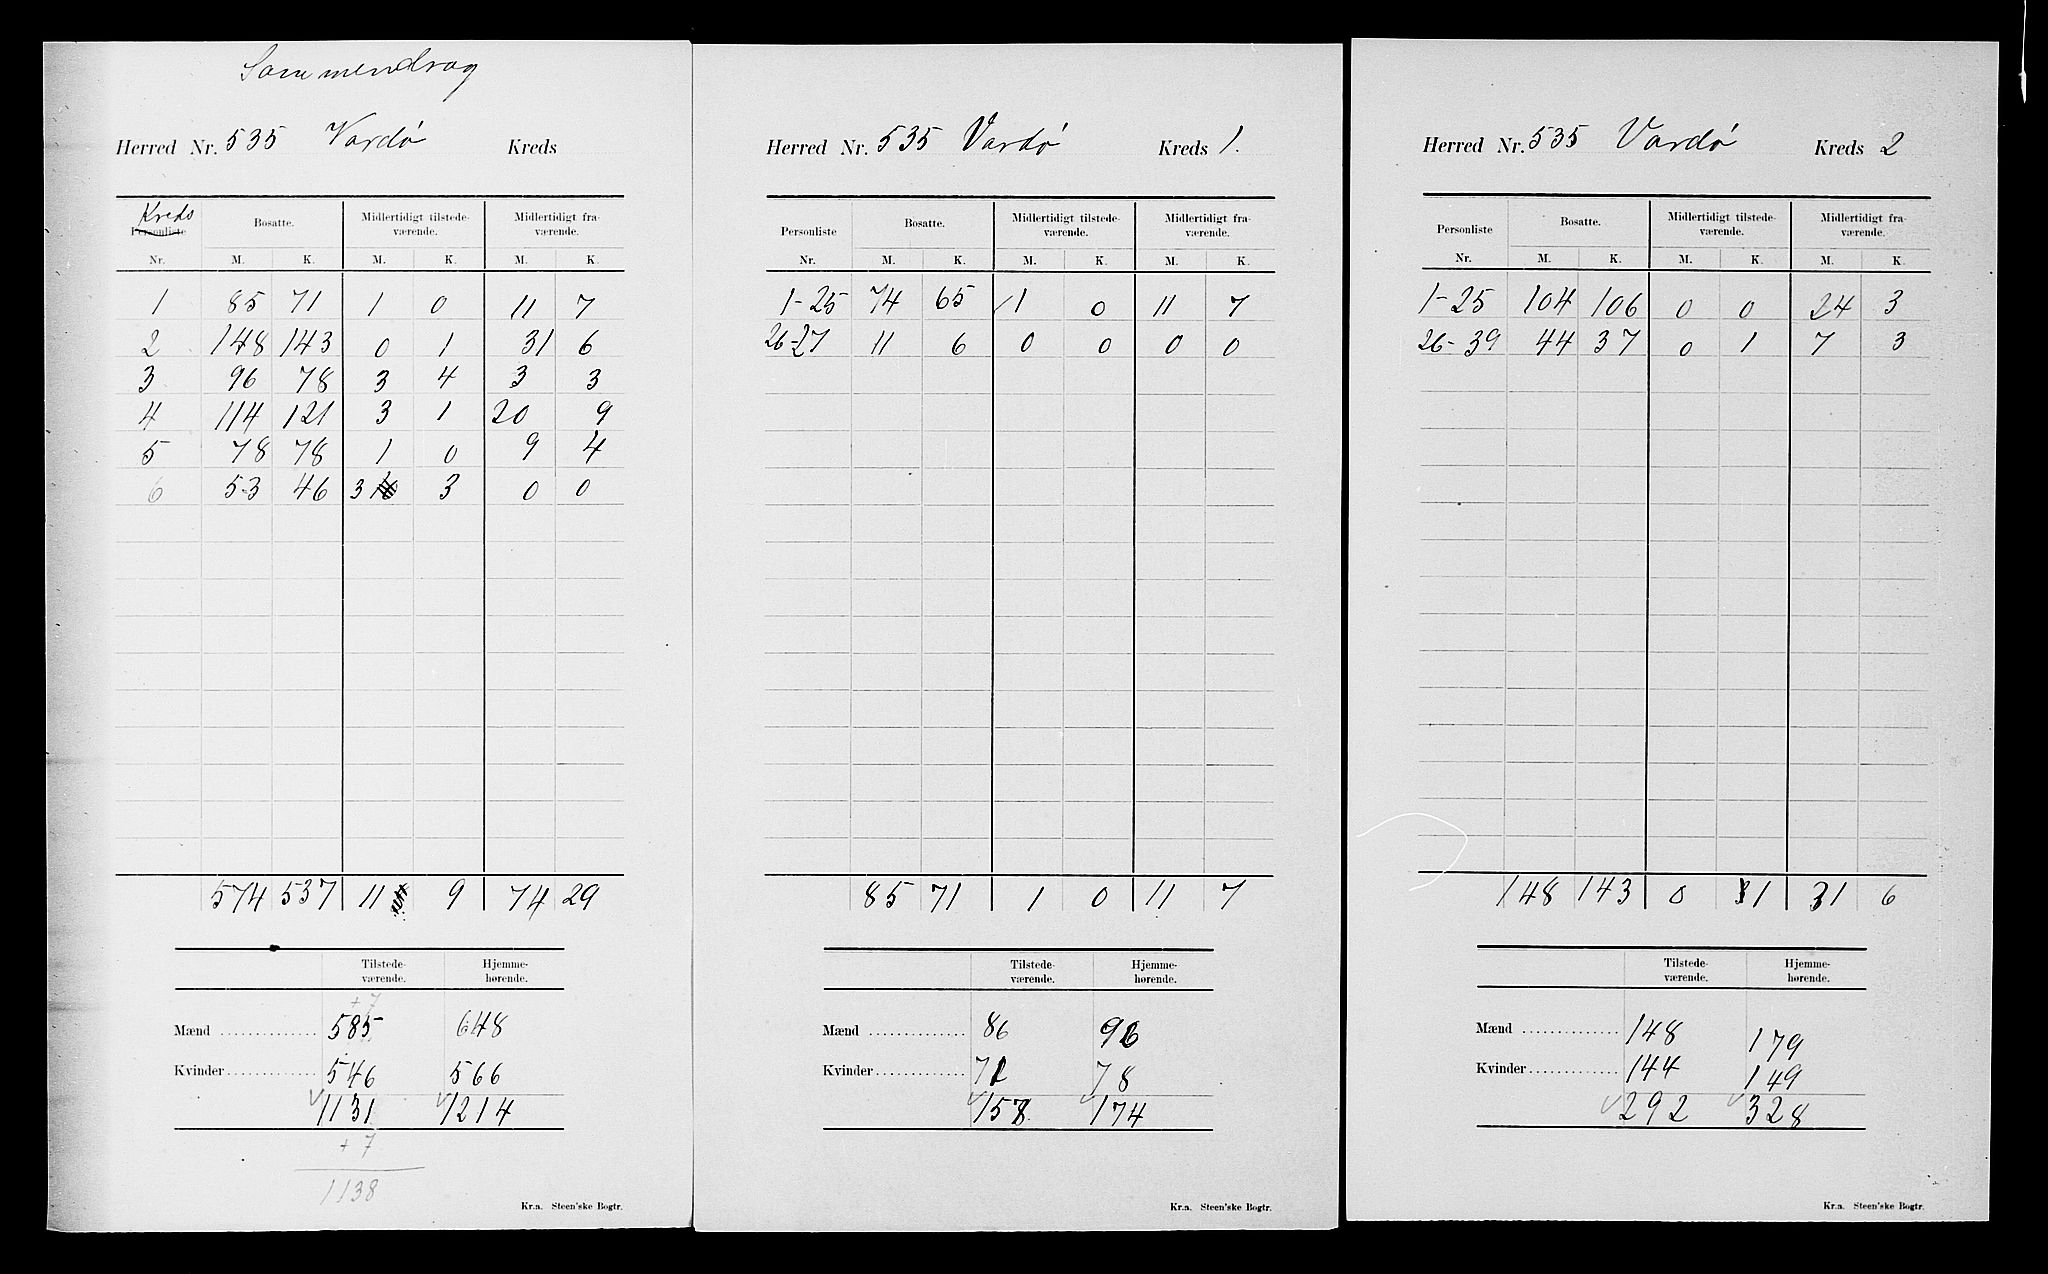 Sammendrag
Herred Nr. 535 Vardø Kreds
Kreds
Personliste Bosatte. Midlertidigt tilstede-værende. Midlertidigt fra-værende.
Nr. M. K. M. K. M. K.
1 85 71 1 0 11 7
2 148 143 0 1 31 6
3 96 78 3 4 3 3
4 114 121 3 1 20 9
5 78 78 1 0 9 4
6 53 46 3 3 0 0
574 537 11 9 74 29
Tilstede-værende. Hjemme-hørende.
+7
Mænd 585 648
Kvinder 546 566
1131 1214
+7
1138
Kr.a. Steen'ske Bogtr.
Herred Nr. 535 Vardø Kreds 1.
Personliste Bosatte. Midlertidigt tilstede-værende. Midlertidigt fra-værende.
Nr. M. K. M. K. M. K.
1-25 74 65 1 0 11 7
26-27 11 6 0 0 0 0
85 71 1 0 11 7
Tilstede-værende. Hjemme-hørende.
Mænd 86 96
Kvinder 71 78
157 174
Kr.a. Steen'ske Bogtr.
Herred Nr. 535 Vardø Kreds 2
Personliste Bosatte. Midlertidigt tilstede-værende. Midlertidigt fra-værende.
Nr. M. K. M. K. M. K.
1-25 104 106 0 0 24 3
26-39 44 37 0 1 7 3
148 143 0 1 31 6
Tilstede-værende. Hjemme-hørende.
Mænd 148 179
Kvinder 144 149
292 328
Kr.a. Steen'ske Bogtr.